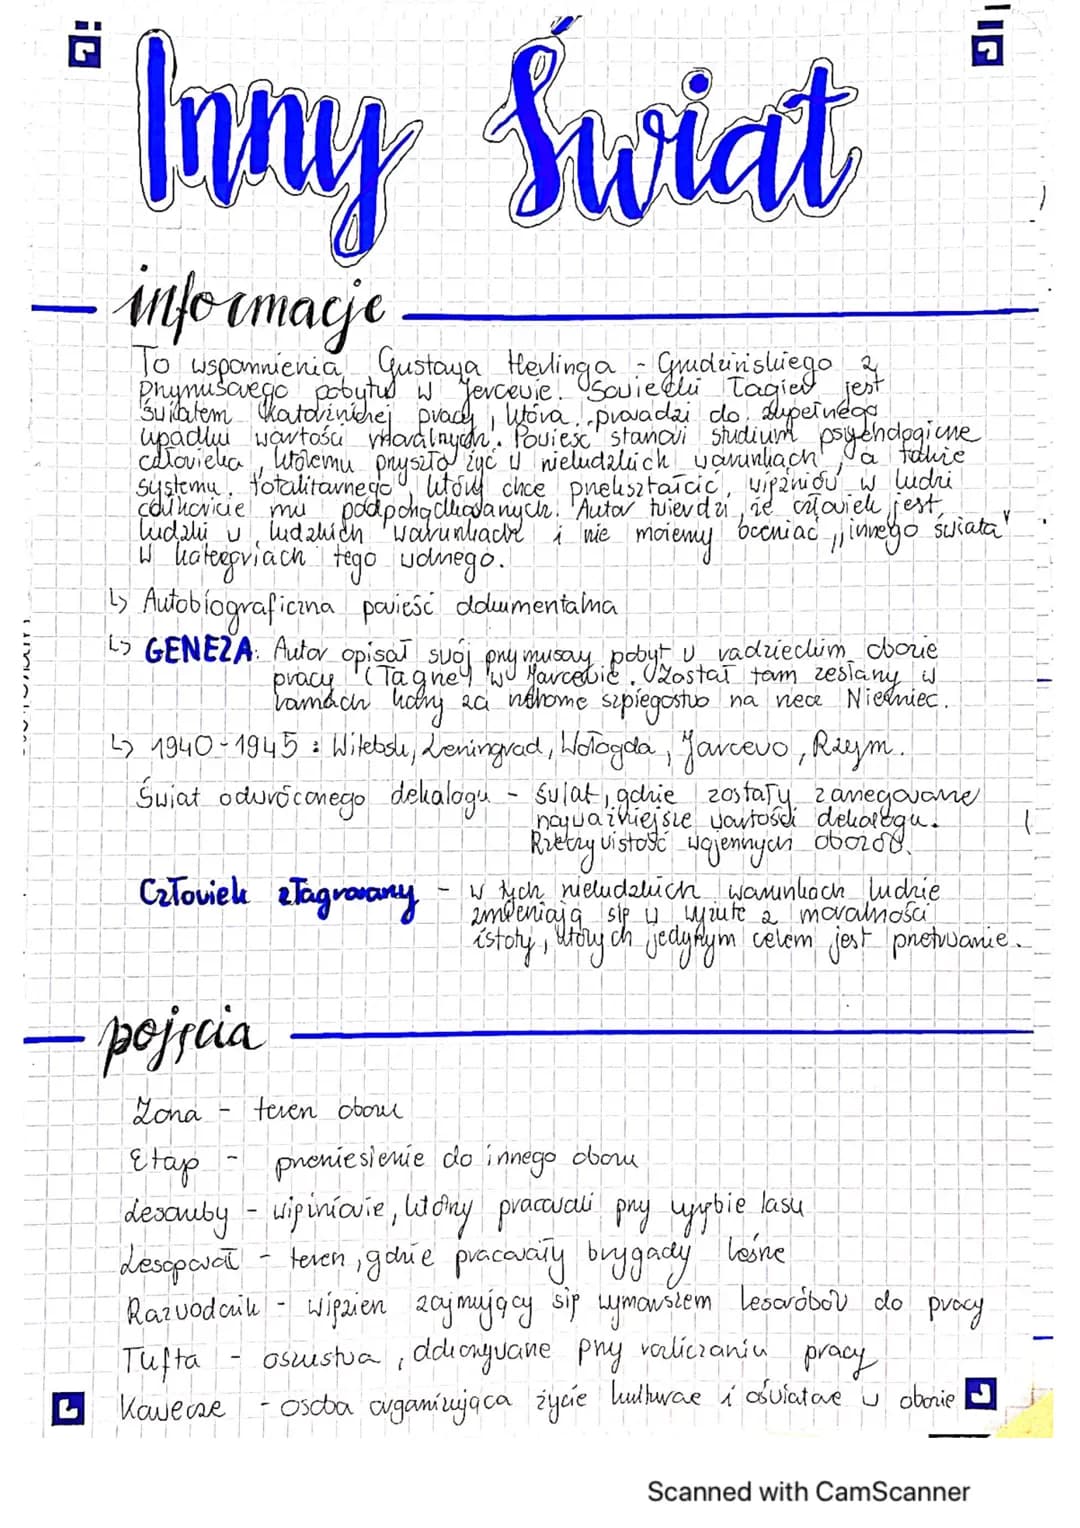 Inny Świat
informacje
To wspomnienia Gustawa Herlinga - Grudzińskiego z
przymusowego pobytu w Jercewie. Sowiecki łagier jest
światem katorżniczej pracy, która prowadzi do zupełnego
upadku wartości moralnych. Powieść stanowi studium psychologiczne
człowieka, któremu przyszło żyć w nieludzkich warunkach, a także
systemu totalitarnego, który chce przekształcić więźniów w ludzi
całkowicie mu podporządkowanych. Autor twierdzi, że człowiek jest
ludzki w ludzkich warunkach i nie możemy oceniać „innego świata"
w kategoriach tego wolnego.
↳ Autobiograficzna powieść dokumentalna
↳ GENEZA: Autor opisał swój przymusowy pobyt w radzieckim obozie
pracy (łagrze) w Jarcewie. Został tam zesłany w
ramach kary za rzekome szpiegostwo na rzecz Niemiec.
↳ 1940-1945 : Witebsk, Leningrad, Wołogda, Jarcevo, Rzym.
Świat odwróconego dekalogu - świat, gdzie zostały zanegowane
najważniejsze wartości dekalogu.
Rzeczywistość wojennych obozów.
Człowiek zlagrowany - w tych nieludzkich warunkach ludzie
zmieniają się w wyzute z moralności
istoty, których jedynym celem jest przetrwanie.
pojęcia
Zona - teren obozu
Etap - przeniesienie do innego obozu
Lesoruby - więźniowie, którzy pracowali przy wyrębie lasu
Lesopował - teren, gdzie pracowały brygady leśne
Razwodczik - więzien zajmujący się wymarszem lesoróbów do pracy
Tufta - oszustwa, dokonywane przy rozliczaniu pracy
Kawecze - osoba organizująca życie kulturae i oświatowe w obozie
Scanned with CamScanner